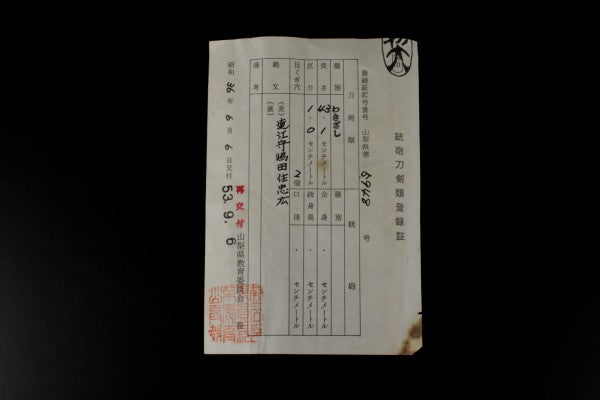 銃砲刀剣類登録証
登録証記号番号 山梨県第 6948 号
刀剣類 銃砲
種別 わきざし 種別
長さ 43.1 センチメートル 全身 . センチメートル
反り 1.0 センチメートル 銃身長 . センチメートル
目くぎ穴 2個 口径 . センチメートル
銘文 (表) 遠江守嶋田住忠広
(裏)
備考
昭和 36年 6月 6日交付
再交付 53.9.6
山梨県教育委員会